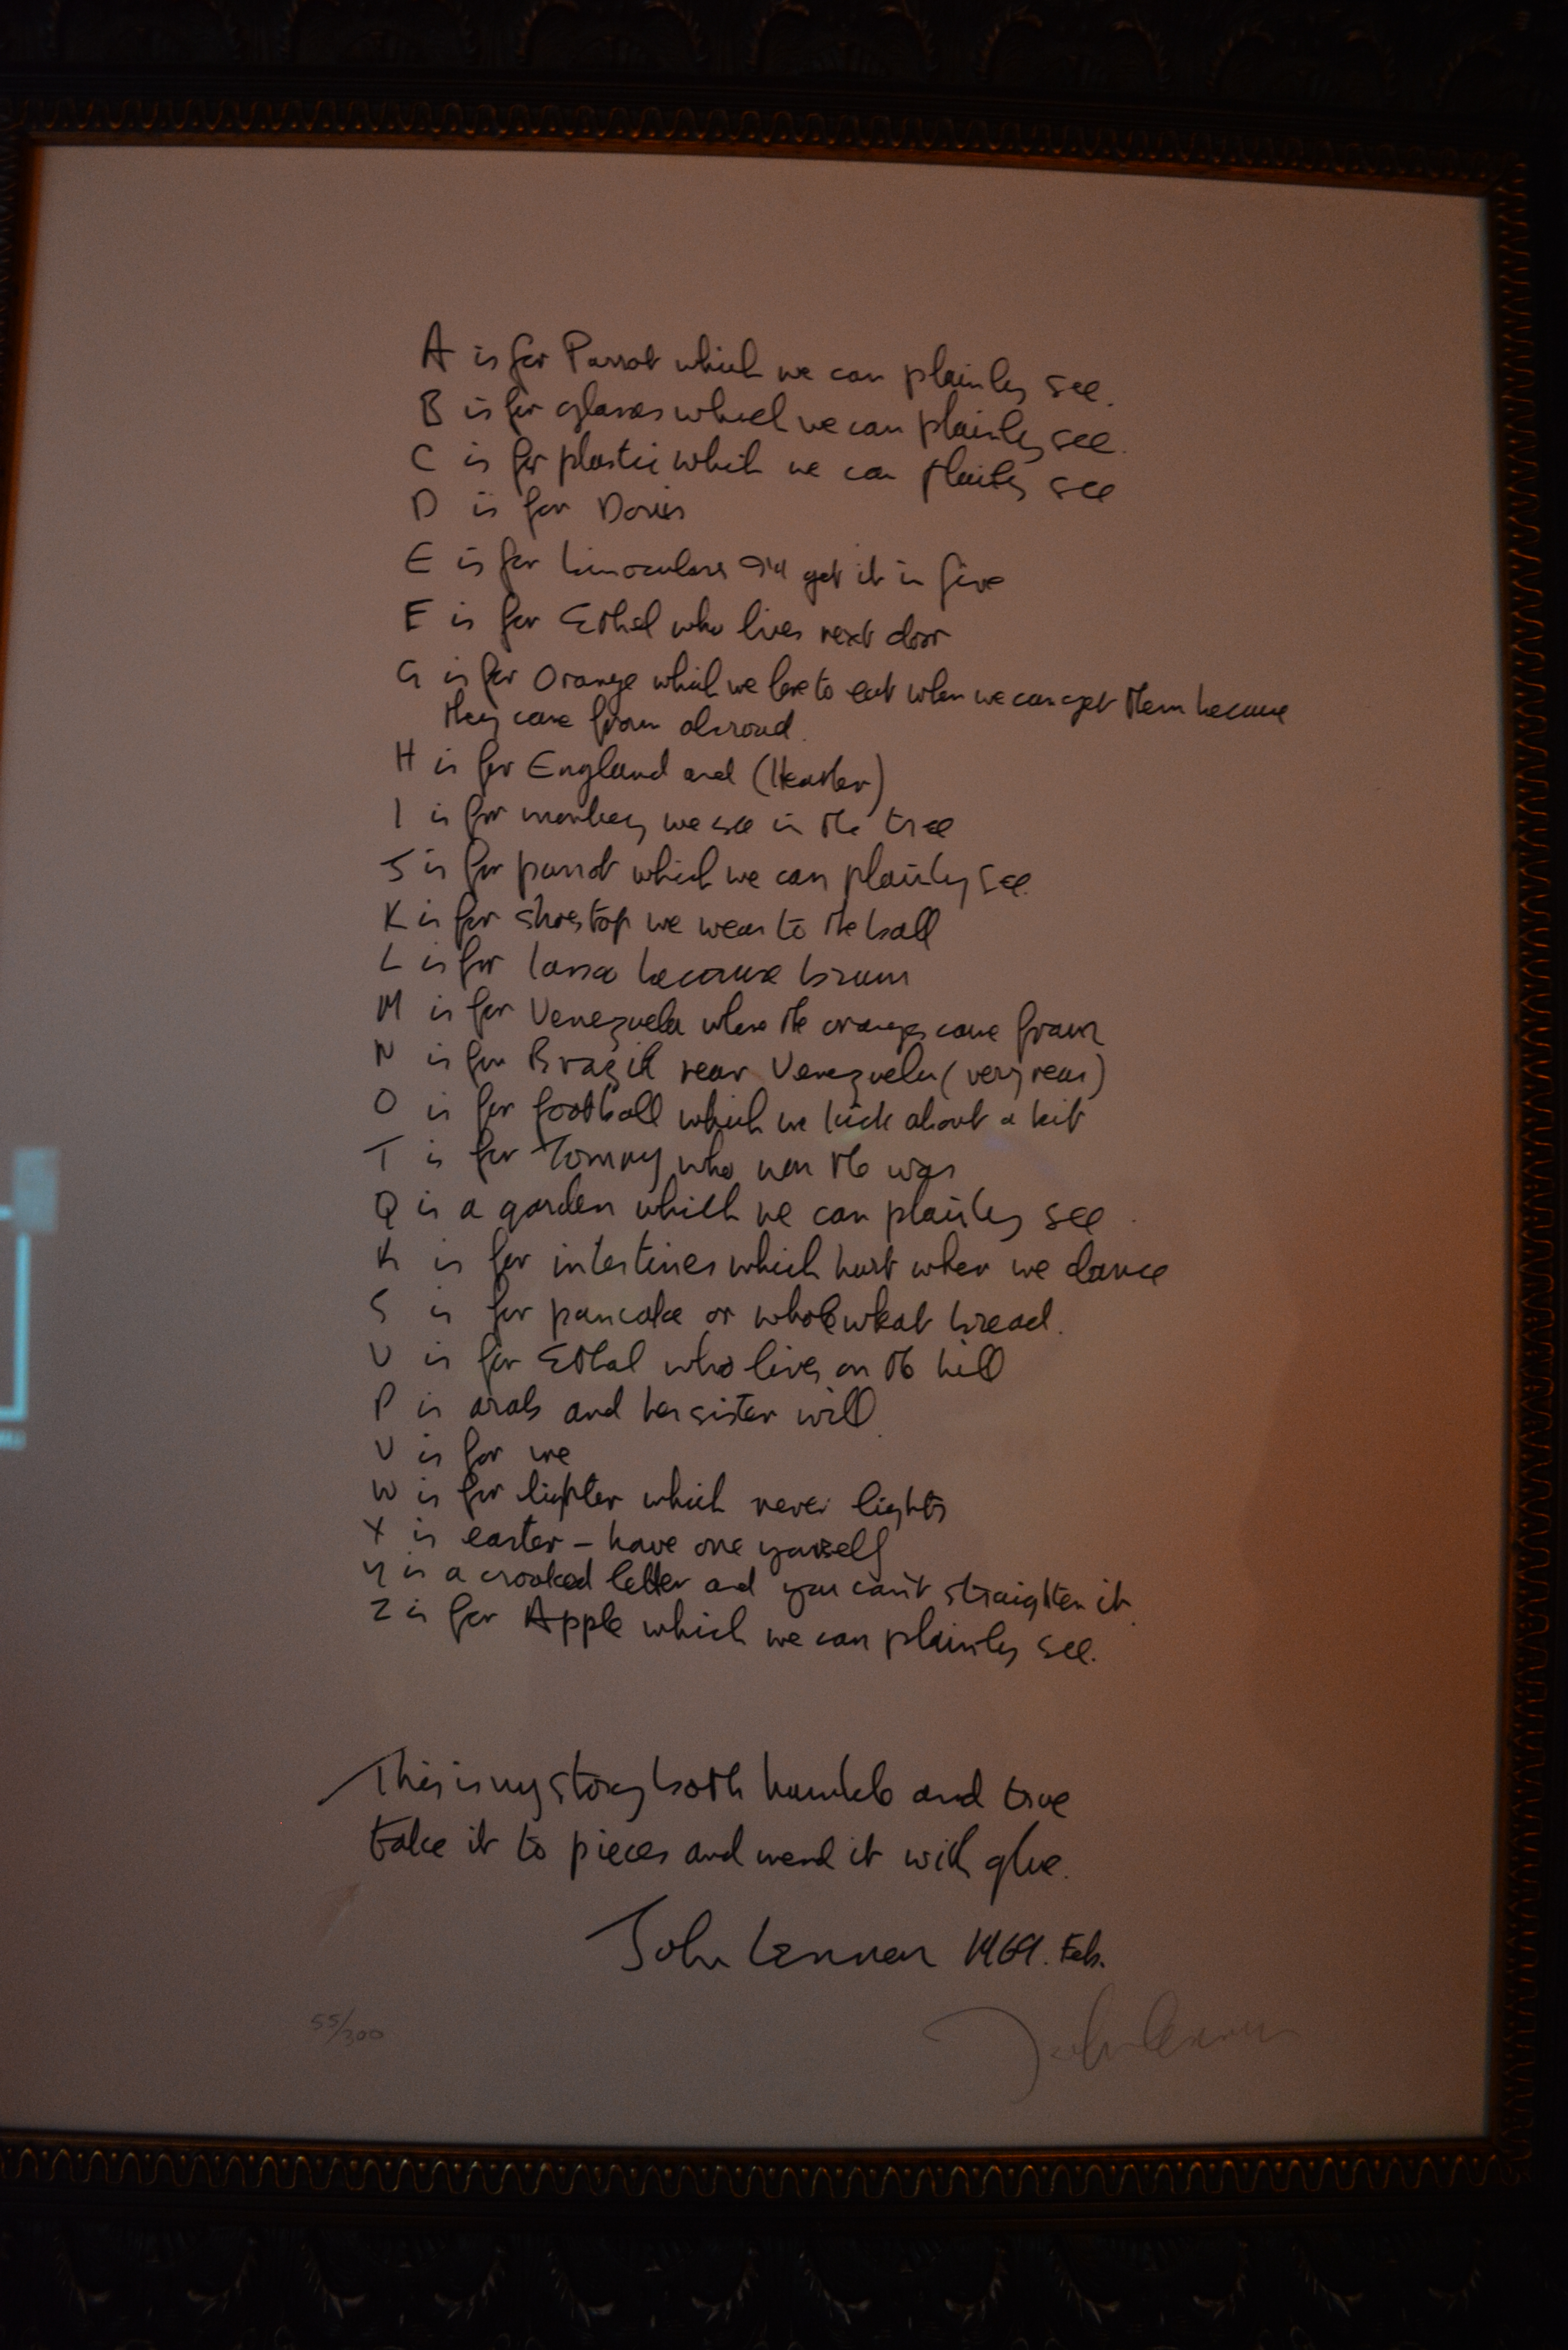 A is for Parrot which we can plainly see.
B is for glasses which we can plainly see.
C is for plastic which we can plainly see
D is for Doris
E is for binoculars I'll get it in five
F is for Ethel who lives next door
G is for Orange which we love to eat when we can get them because
they come from abroad.
H is for England and (Heather)
I is for monkey we see in the tree
J is for parrot which we can plainly see.
K is for shoestop we wear to the ball
L is for lasso because brown
M is for Venezuela where the oranges come from
N is for Brazil near Venezuela (very near)
O is for football which we kick about a bit
T is for Tommy who won the war
Q is a garden which we can plainly see.
R is for intestines which hurt when we dance
S is for pancake or wholewheat bread.
U is for Ethel who lives on the hill
P is arab and her sister will.
V is for me
W is for lighter which never lights
X is easter - have one yourself
Y is a crooked letter and you can't straighten it.
Z is for Apple which we can plainly see.
This is my story both humble and true
take it to pieces and mend it with glue.
John Lennon 1969. Feb.
55/300
John Lennon